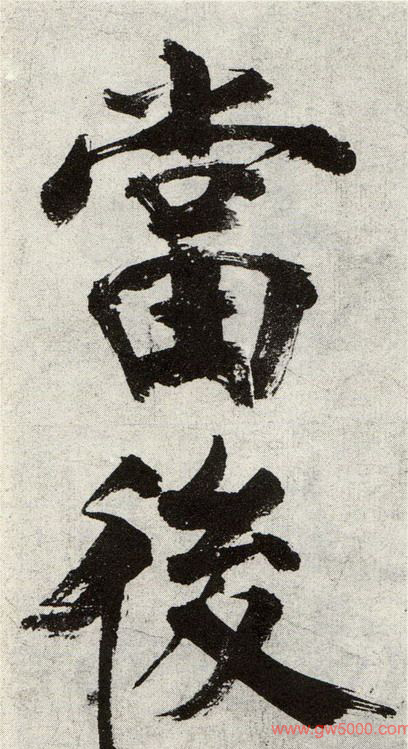 當後
www.gw5000.com